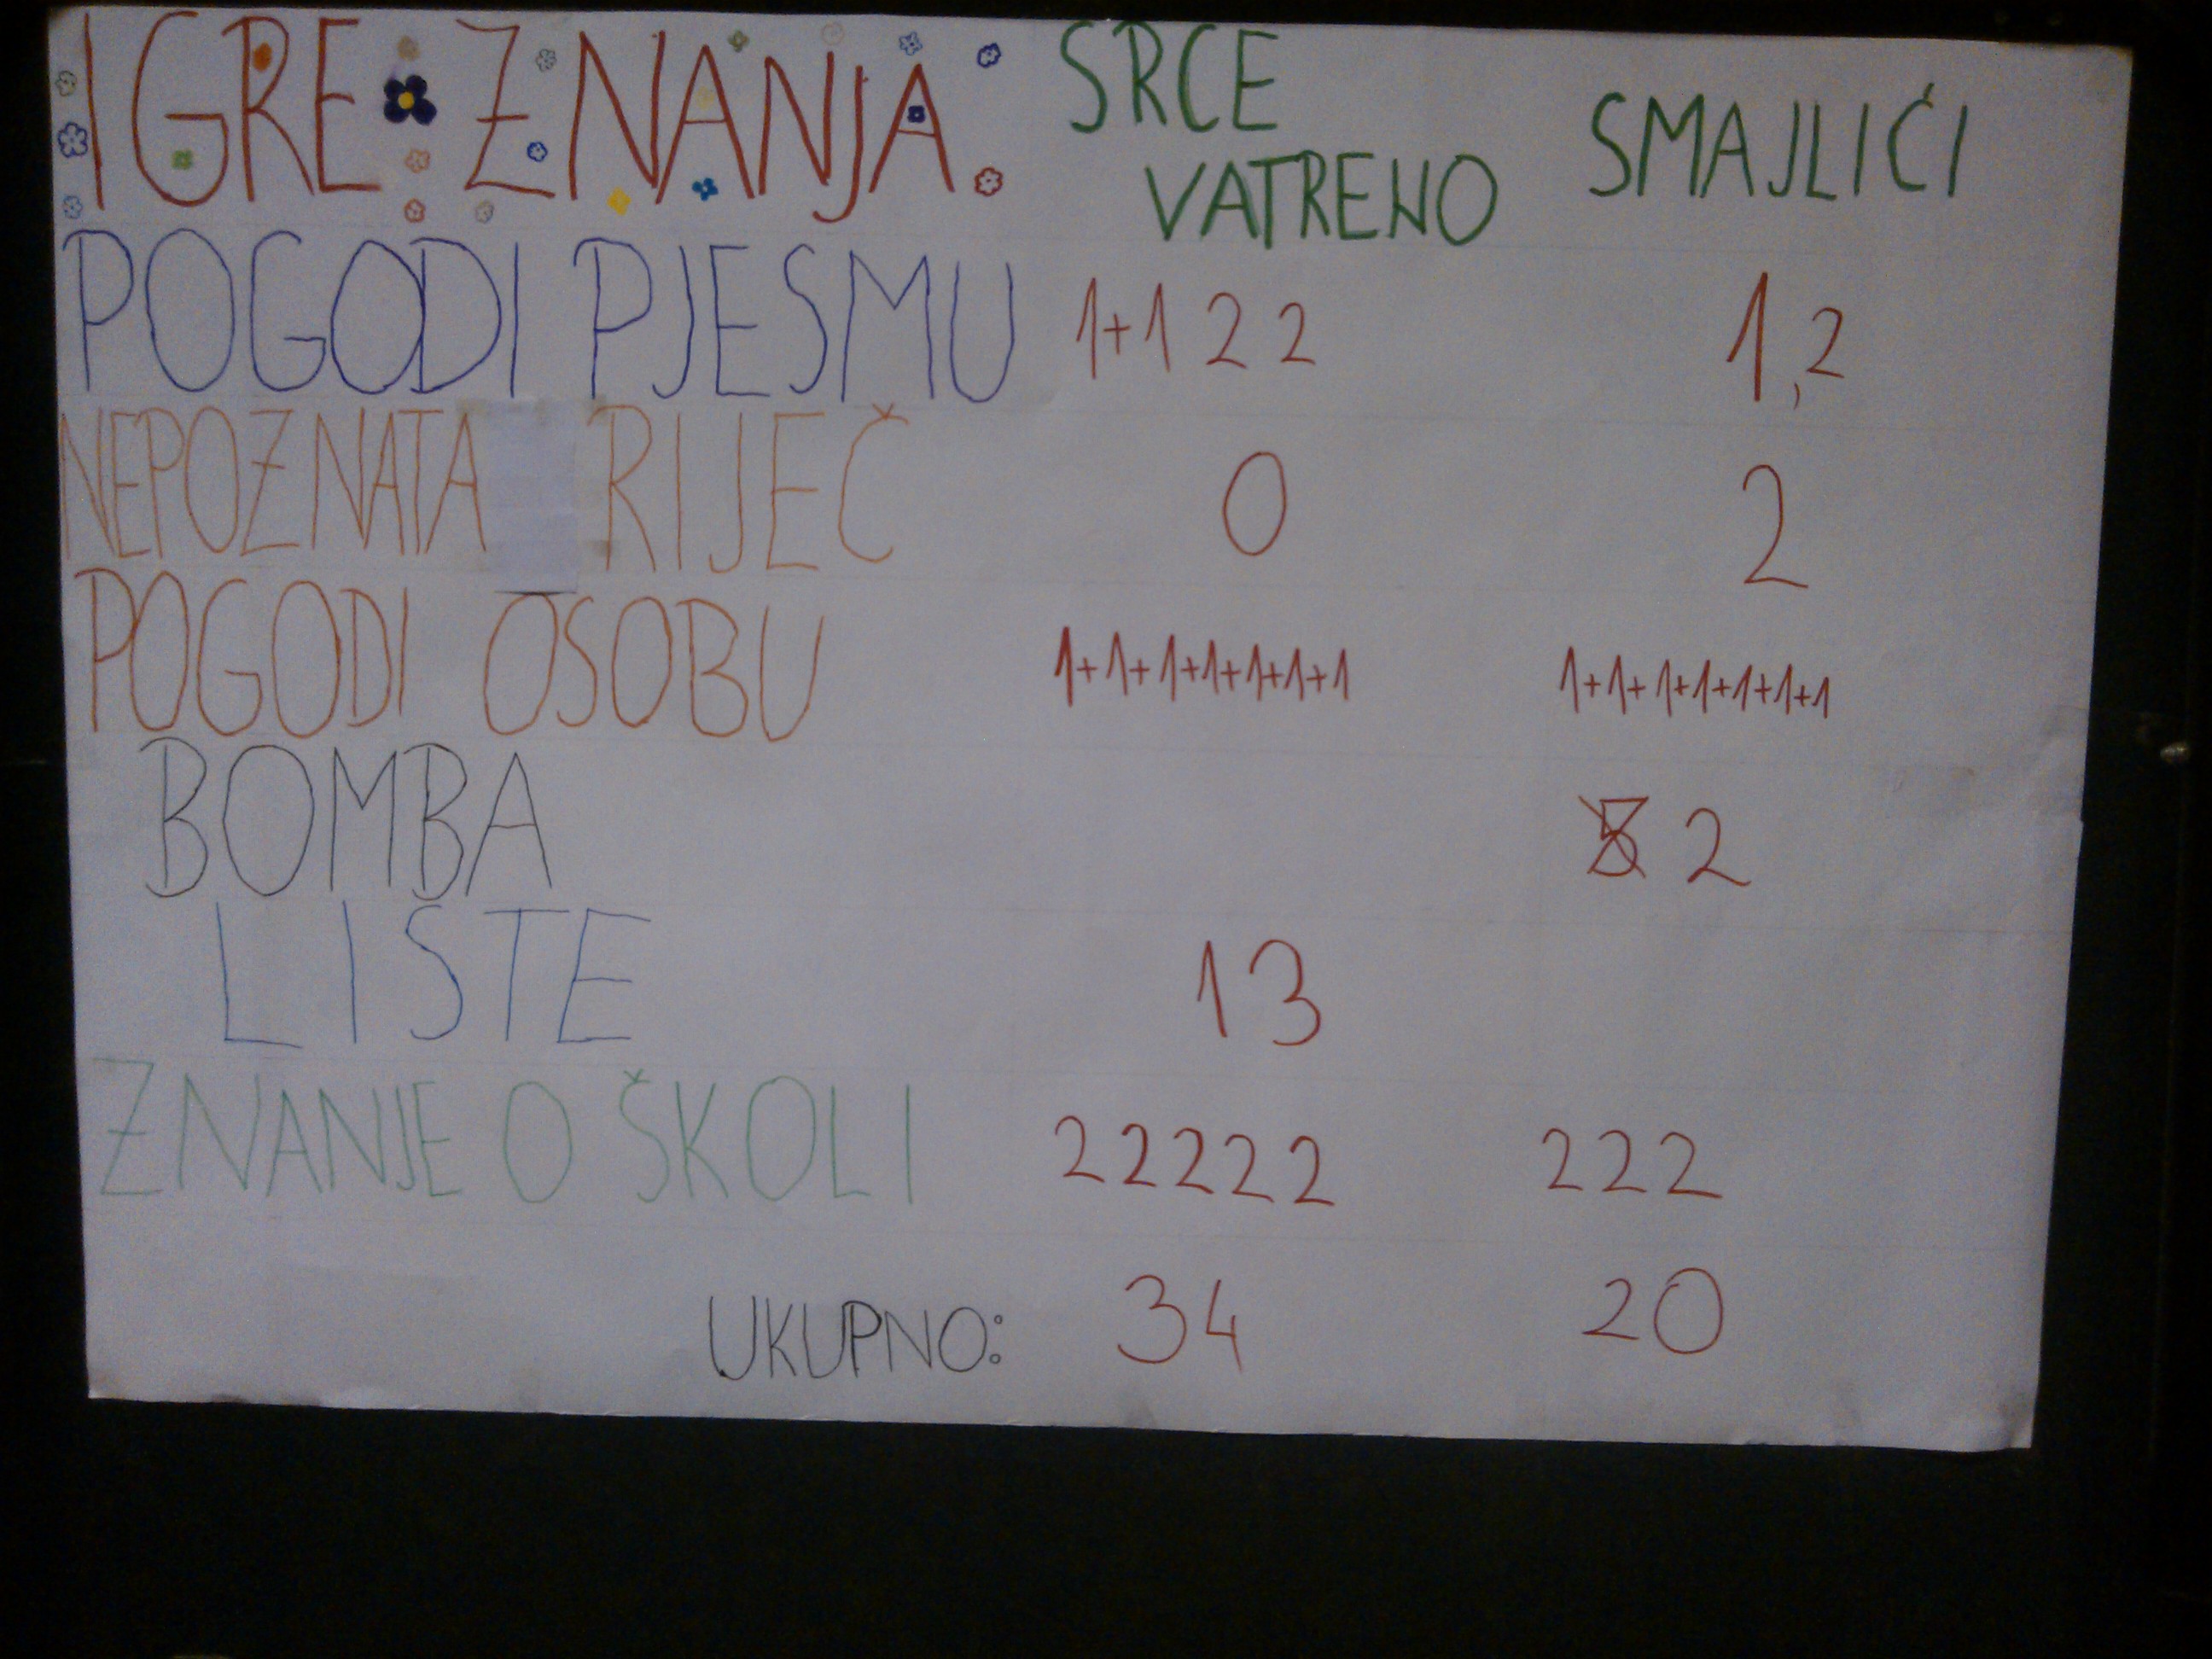 IGRE ZNANJA. SRCE VATRENO SMAJLIĆI
POGODI PJESMU 1+1 2 2 1,2
NEPOZNATA RIJEČ 0 2
POGODI OSOBU 1+1+1+1+1+1+1 1+1+1+1+1+1+1
BOMBA 2
LISTE 13
ZNANJE O ŠKOLI 22222 222
UKUPNO: 34 20